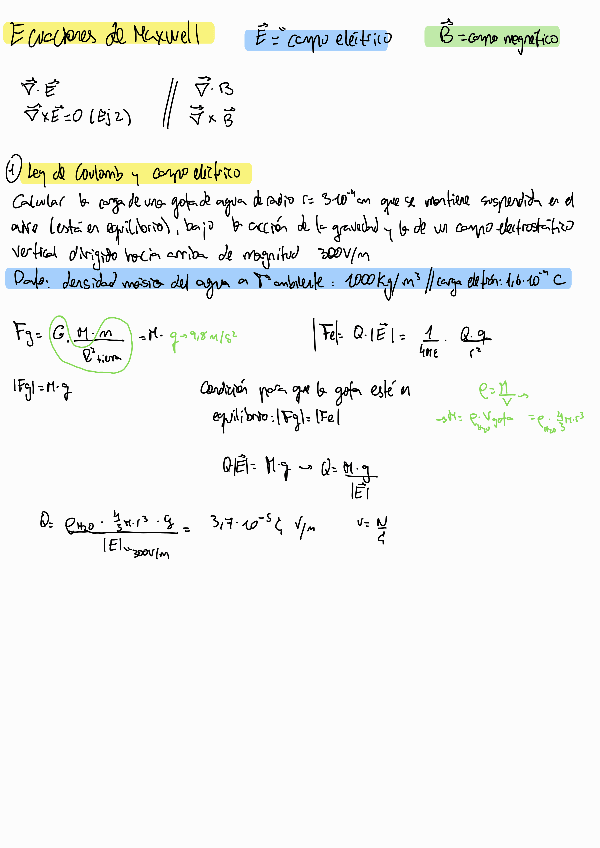 Ecuaciones de Maxwell E⃗ = campo eléctrico B⃗ = campo magnético
∇⃗ · E⃗ // ∇⃗ · B
∇⃗ x E⃗ = 0 (Ej 2) ∇⃗ x B⃗
1) Ley de Coulomb y campo eléctrico
Calcular la carga de una gota de agua de radio r = 3·10⁻⁴ cm que se mantiene suspendida en el
aire (está en equilibrio), bajo la acción de la gravedad y la de un campo electrostático
vertical dirigido hacia arriba de magnitud 300 V/m
Dato: densidad másica del agua a Tª ambiente: 1000 Kg/m³ // carga eletrón: 1,6·10⁻¹⁹ C
Fg = G · M·m / R²tierra = M · g → 9,8 m/s² |Fe| = Q·|E⃗| = 1/4πε · Q·q / r²
|Fg| = M·g Condición para que la gota esté en ρ = M/V →
equilibrio: |Fg| = |Fe| → M = ρH₂O · V gota = ρH₂O · 4/3 π·r³
Q|E⃗| = M·g → Q = M·g / |E⃗|
Q = ρH₂O · 4/3 π·r³ · g / |E| → 300 V/m = 3,7·10⁻⁵ C V/m V = N/C